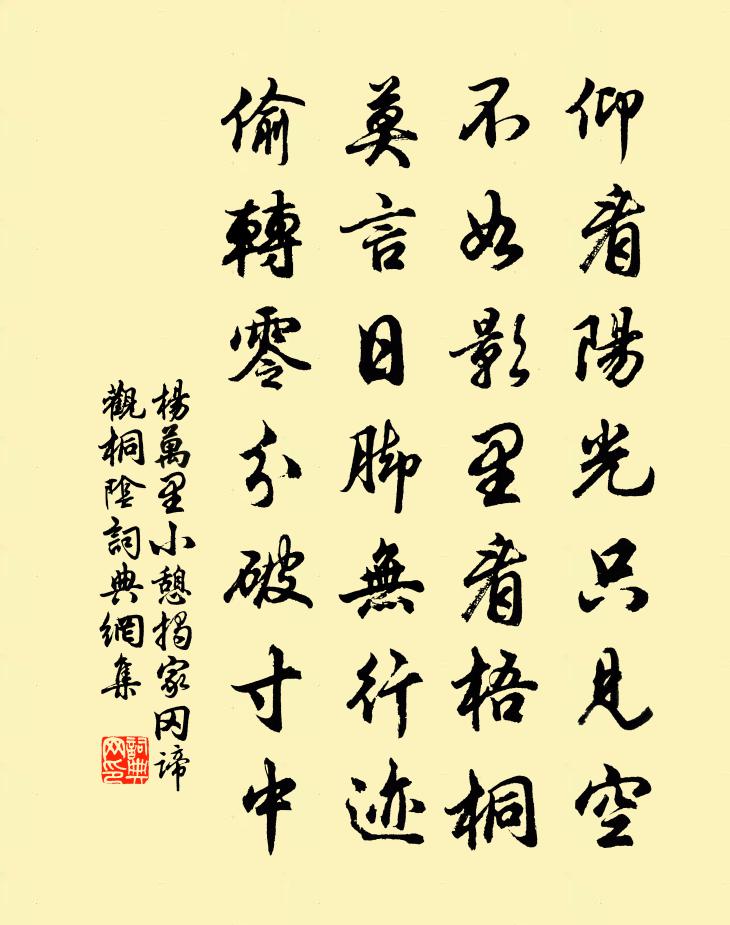 仰看陽光只見空
不如影里看梧桐
莫言日脚無行迹
偷轉零分破寸中
楊萬里小憩揭家冈諦
觀桐陰詞典網集
詞典
网印